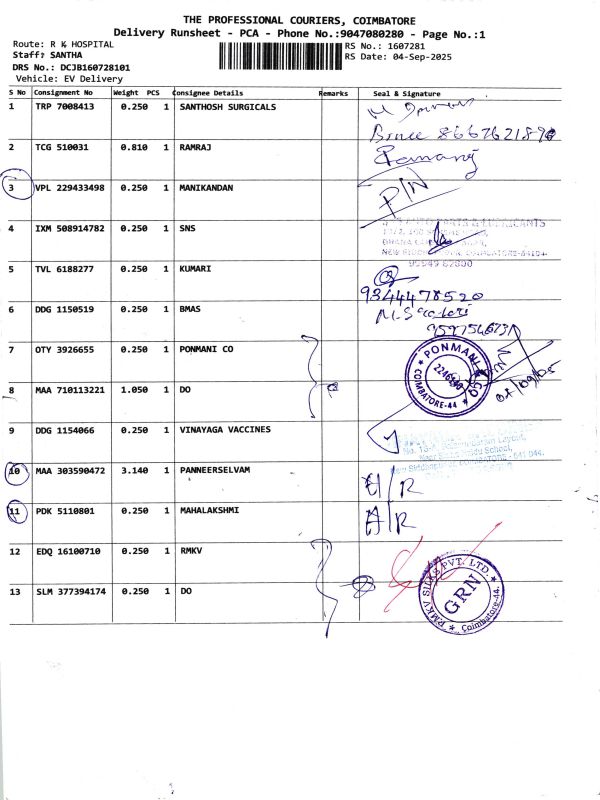 THE PROFESSIONAL COURIERS, COIMBATORE
Delivery Runsheet - PCA - Phone No.:9047080280 - Page No.:1
Route: R K HOSPITAL
RS No.: 1607281
Staff: SANTHA
RS Date: 04-Sep-2025
DRS No.: DCJB160728101
Vehicle: EV Delivery
S No Consignment No Weight PCS Consignee Details Remarks Seal & Signature
1 TRP 7008413 0.250 1 SANTHOSH SURGICALS
8667621890
2 TCG 510031 0.810 1 RAMRAJ
3 VPL 229433498 0.250 1 MANIKANDAN P/N
4 IXM 508914782 0.250 1 SNS
5 TVL 6188277 0.250 1 KUMARI
9344478520
6 DDG 1150519 0.250 1 BMAS
7 OTY 3926655 0.250 1 PONMANI CO
PONMANI & CO
COIMBATORE-44
8 MAA 710113221 1.050 1 DO
9 DDG 1154066 0.250 1 VINAYAGA VACCINES
10 MAA 303590472 3.140 1 PANNEERSELVAM H/R
11 PDK 5110801 0.250 1 MAHALAKSHMI H/R
12 EDQ 16100710 0.250 1 RMKV
13 SLM 377394174 0.250 1 DO
RMKV SILKS PVT. LTD.
GRN
Coimbatore-44.